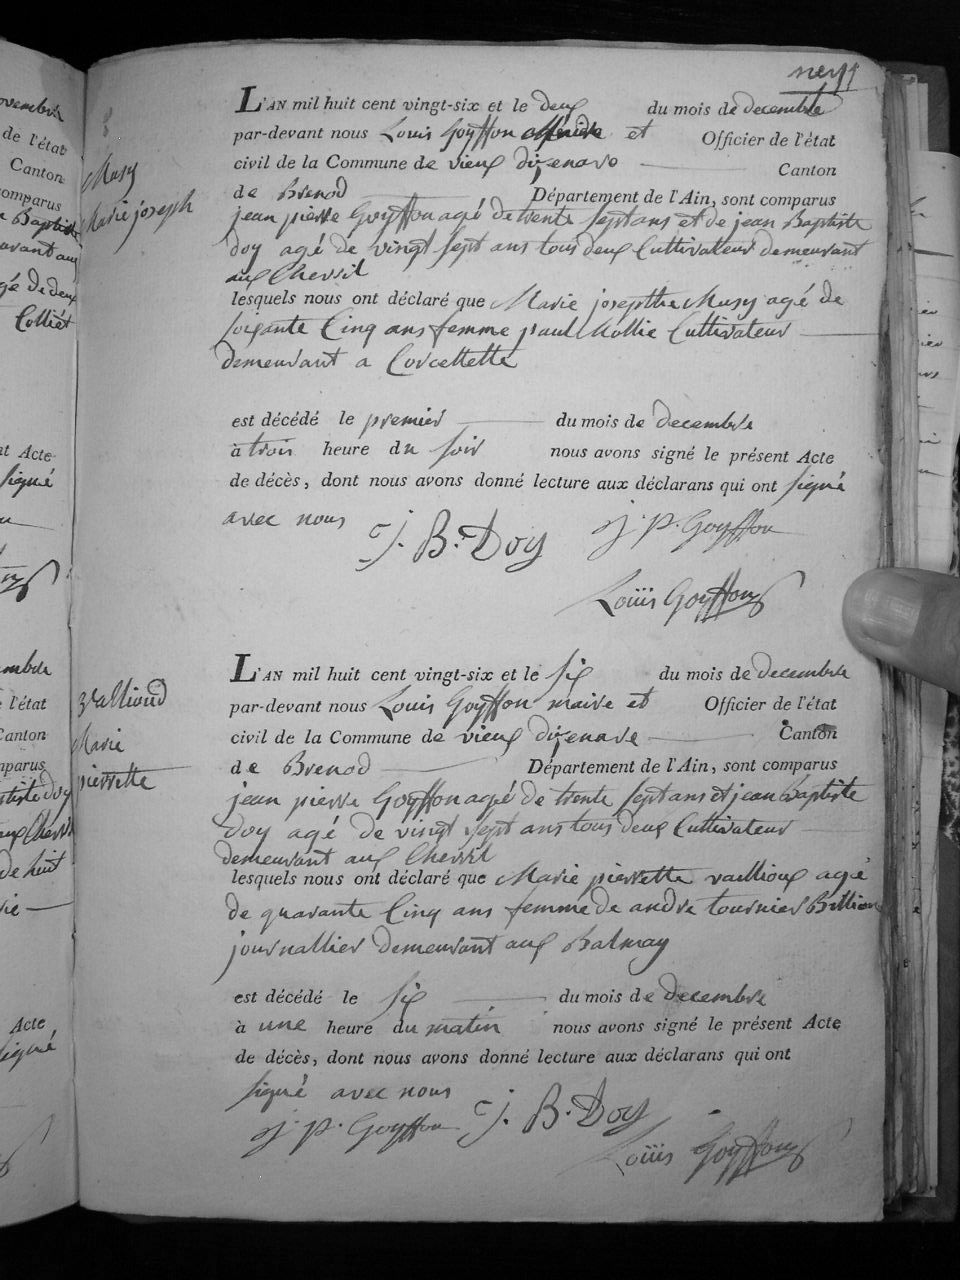 neuf
Musy
Marie joseph
L'AN mil huit cent vingt-six et le deux du mois de decembre
par-devant nous Louis Goyffon et Officier de l'état
civil de la Commune de vieux dizenave Canton
de Brenod Département de l'Ain, sont comparus
jean pierre Goyffon agé de trente sept ans et de jean Baptiste
doy agé de vingt sept ans tous deux Cultivateur demeurant
aux Chevril
lesquels nous ont déclaré que Marie josepthe Musy agé de
soixante Cinq ans femme paul Mollie Cultivateur
demeurant a Corcellette
est décédé le premier du mois de decembre
à trois heure du soir nous avons signé le présent Acte
de décès, dont nous avons donné lecture aux déclarans qui ont signé
avec nous J. B. Doy j. p. Goyffon
Louis Goyffon
Marie
pierrette
L'AN mil huit cent vingt-six et le six du mois de decembre
par-devant nous Louis Goyffon maire et Officier de l'état
civil de la Commune de vieux dizenave Canton
de Brenod Département de l'Ain, sont comparus
jean pierre Goyffon agé de trente sept ans et jean baptiste
doy agé de vingt sept ans tous deux Cultivateur
demeurant aux Chevril
lesquels nous ont déclaré que Marie pierrette vaillioux agé
de quarante Cinq ans femme de andre tournier Billion
journallier demeurant aux Balmay
est décédé le six du mois de decembre
à une heure du matin nous avons signé le présent Acte
de décès, dont nous avons donné lecture aux déclarans qui ont
signé avec nous
j. p. Goyffon J. B. Doy
Louis Goyffon